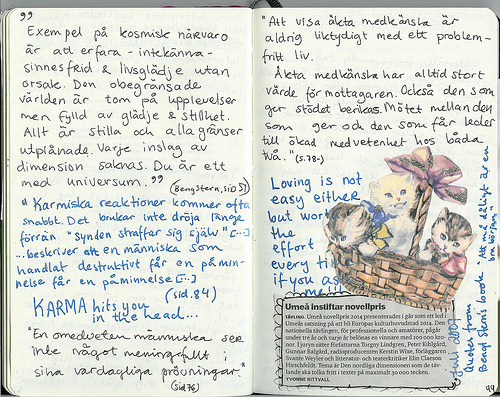 ”
Exempel på kosmisk närvaro
är att erfara - intekänna -
sinnesfrid & livsglädje utan
orsak. Den obegränsade
världen är tom på upplevelser
men fylld av glädje & stillhet.
Allt är stilla och alla gränser
utplånade. Varje inslag av
dimension saknas. Du är ett
med universum.”
(Beng Stern, sid 57)
"Karmiska reaktioner kommer ofta
snabbt. Det brukar inte dröja länge
förrän "synden straffar sig själv" [...]
...beskriver att en människa som
handlat destruktivt får en påmin-
nelse får en påminnelse [...]
(sid. 84)
KARMA hits you
in the head...
"En omedveten människa ser
inte något meningsfullt i
sina vardagliga prövningar."
(sid 76)
"Att visa äkta medkänsla är
aldrig liktydigt med ett problem-
fritt liv.
Äkta medkänska har alltid stort
värde för mottagaren. Också den som
ger stödet berikas. Mötet mellan den
som ger och den som får leder
till ökad medvetenhet hos båda
två." (s.78-)
Loving is not
easy either
but work
the
effort
every time
if you as
me!!
Umeå instiftar novellpris
Umeå. Umeå novellpris 2014 presenterades i går som ett led i
Umeås satsning på att bli Europas kulturhuvudstad 2014. Den
nationella tävlingen, för professionella och amatörer, pågår
under tre år och varje år belönas en vinnare med 100 000 kro-
nor. I juryn sitter författarna Torgny Lindgren, Peter Kihlgård,
Gunnar Balgård, radioproducenten Kerstin Wixe, förläggaren
Svante Weyler och litteratur- och teaterkritiker Elin Claeson
Hirschfeldt. Tema är Den nordliga dimensionen som de täv-
lande ska tolka fritt i texter på maximalt 30 000 tecken.
YVONNE RITTVALL
Juli 2009
Quotes from
Bengt Sterns book "Att må dåligt är en
bra början"
99